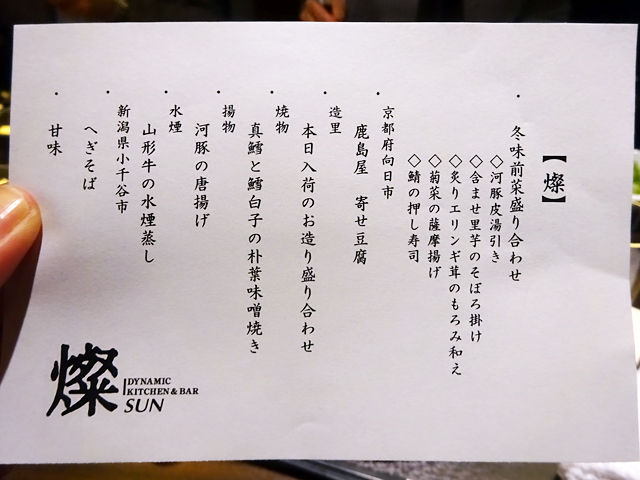 【燦】
・冬味前菜盛り合わせ
◇河豚皮湯引き
◇含ませ里芋のそぼろ掛け
◇炙りエリンギ茸のもろみ和え
◇菊菜の薩摩揚げ
◇鯖の押し寿司
・京都府向日市
鹿島屋 寄せ豆腐
・造里
本日入荷のお造り盛り合わせ
・焼物
真鱈と鱈白子の朴葉味噌焼き
・揚物
河豚の唐揚げ
・水煙
山形牛の水煙蒸し
・新潟県小千谷市
へぎそば
・甘味
燦
DYNAMIC
KITCHEN & BAR
SUN